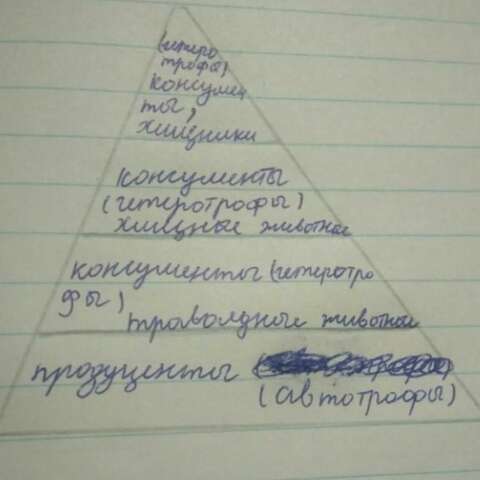 (гетеро
трофы)
консумен
ты,
хищники
консументы
(гетеротрофы)
хищные животное
консументы (гетеротро
фы),
травоядные животное
продуценты
(автотрофы)